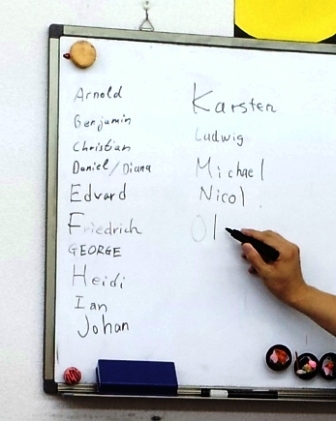 Arnold
Benjamin
Christian
Daniel/Diana
Edvard
Friedrich
GEORGE
Heidi
Ian
Johan
Karsten
Ludwig
Michael
Nicol
Ol